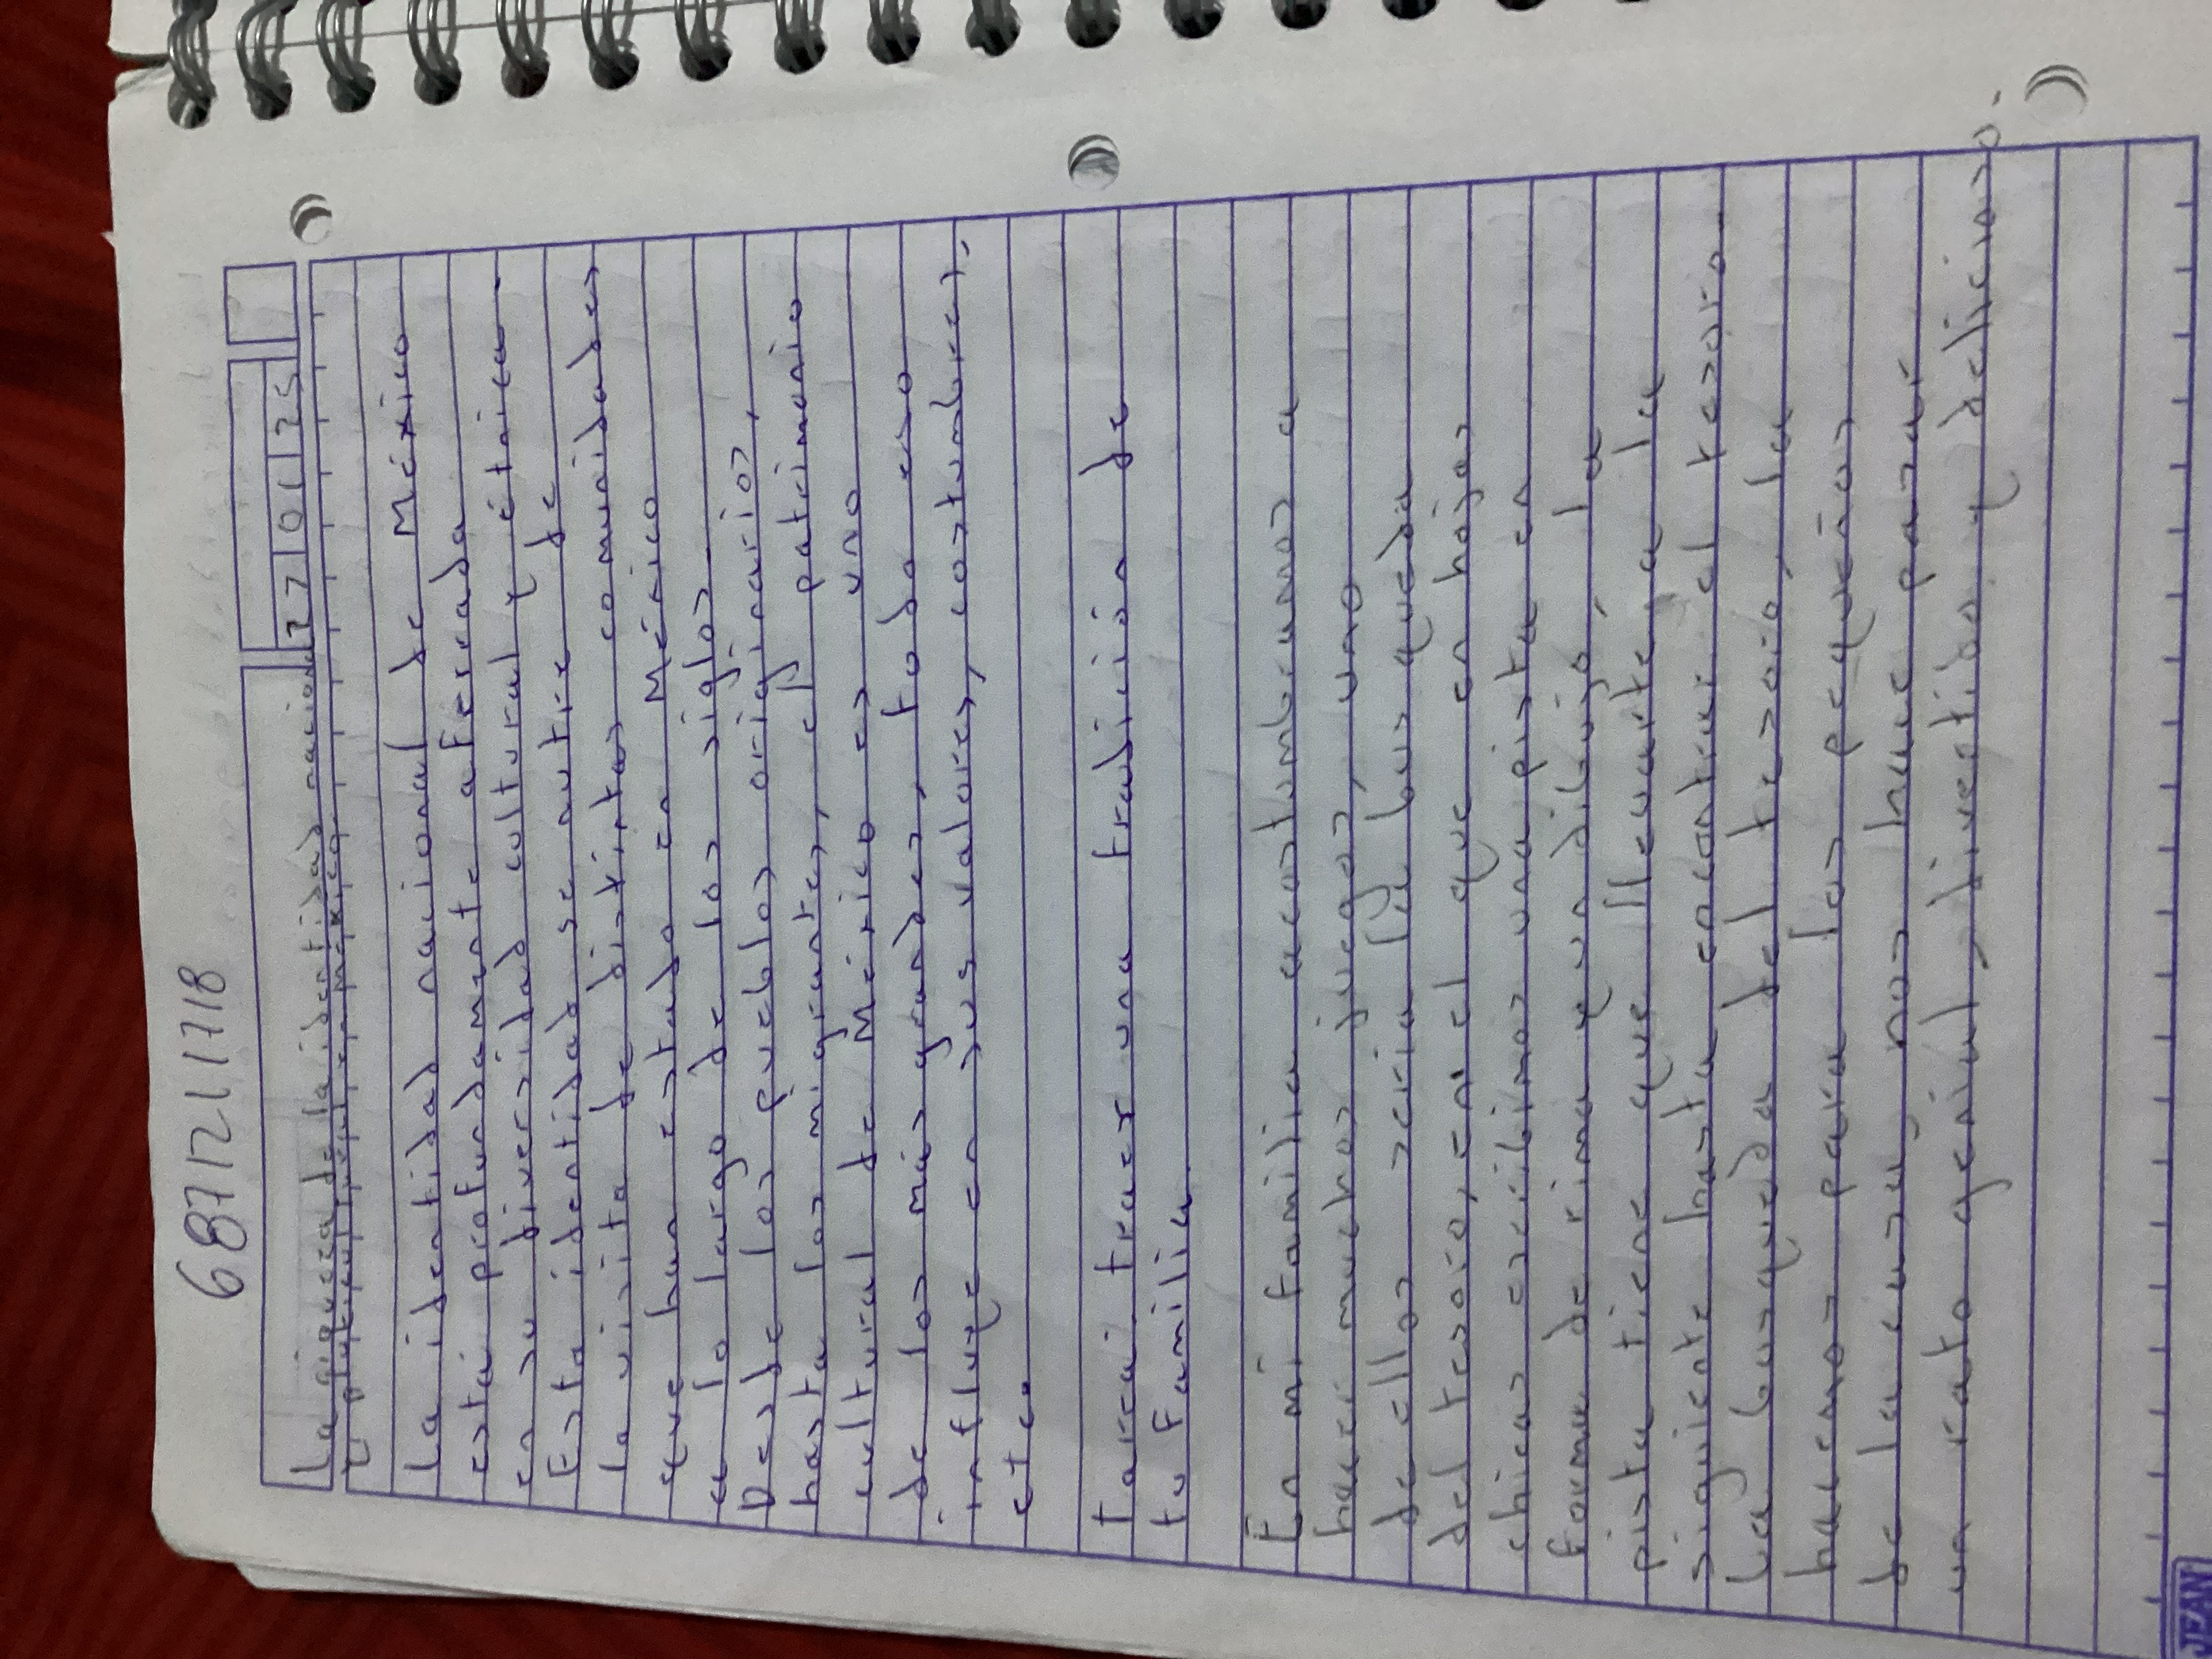 687121718
27 01 25
La riqueza de la identidad nacional
y pluricultural en México.
La identidad nacional de México
está profundamente aferrada
en su diversidad cultural y étnica.
Esta identidad se nutre de
la visita de distintas comunidades
que han estado en México
a lo largo de los siglos.
Desde los pueblos originarios,
hasta los migrantes, el patrimonio
cultural de México es uno
de los más grandes, todo eso
influye en sus valores, costumbres,
etc.
Tarea: traer una tradición de
tu familia.
En mi familia acostumbramos a
hacer muchos juegos, uno
de ellos sería la busqueda
del tesoro, en el que en hojas
chicas escribimos una pista en
forma de rima y un dibujo, la
pista tiene que llevarte a la
siguiente hasta encontrar el tesoro.
La busqueda del tesoro, la
hacemos para los pequeños
de la casa y nos hace pasar
un rato genial, divertido y delicioso.
JEAN